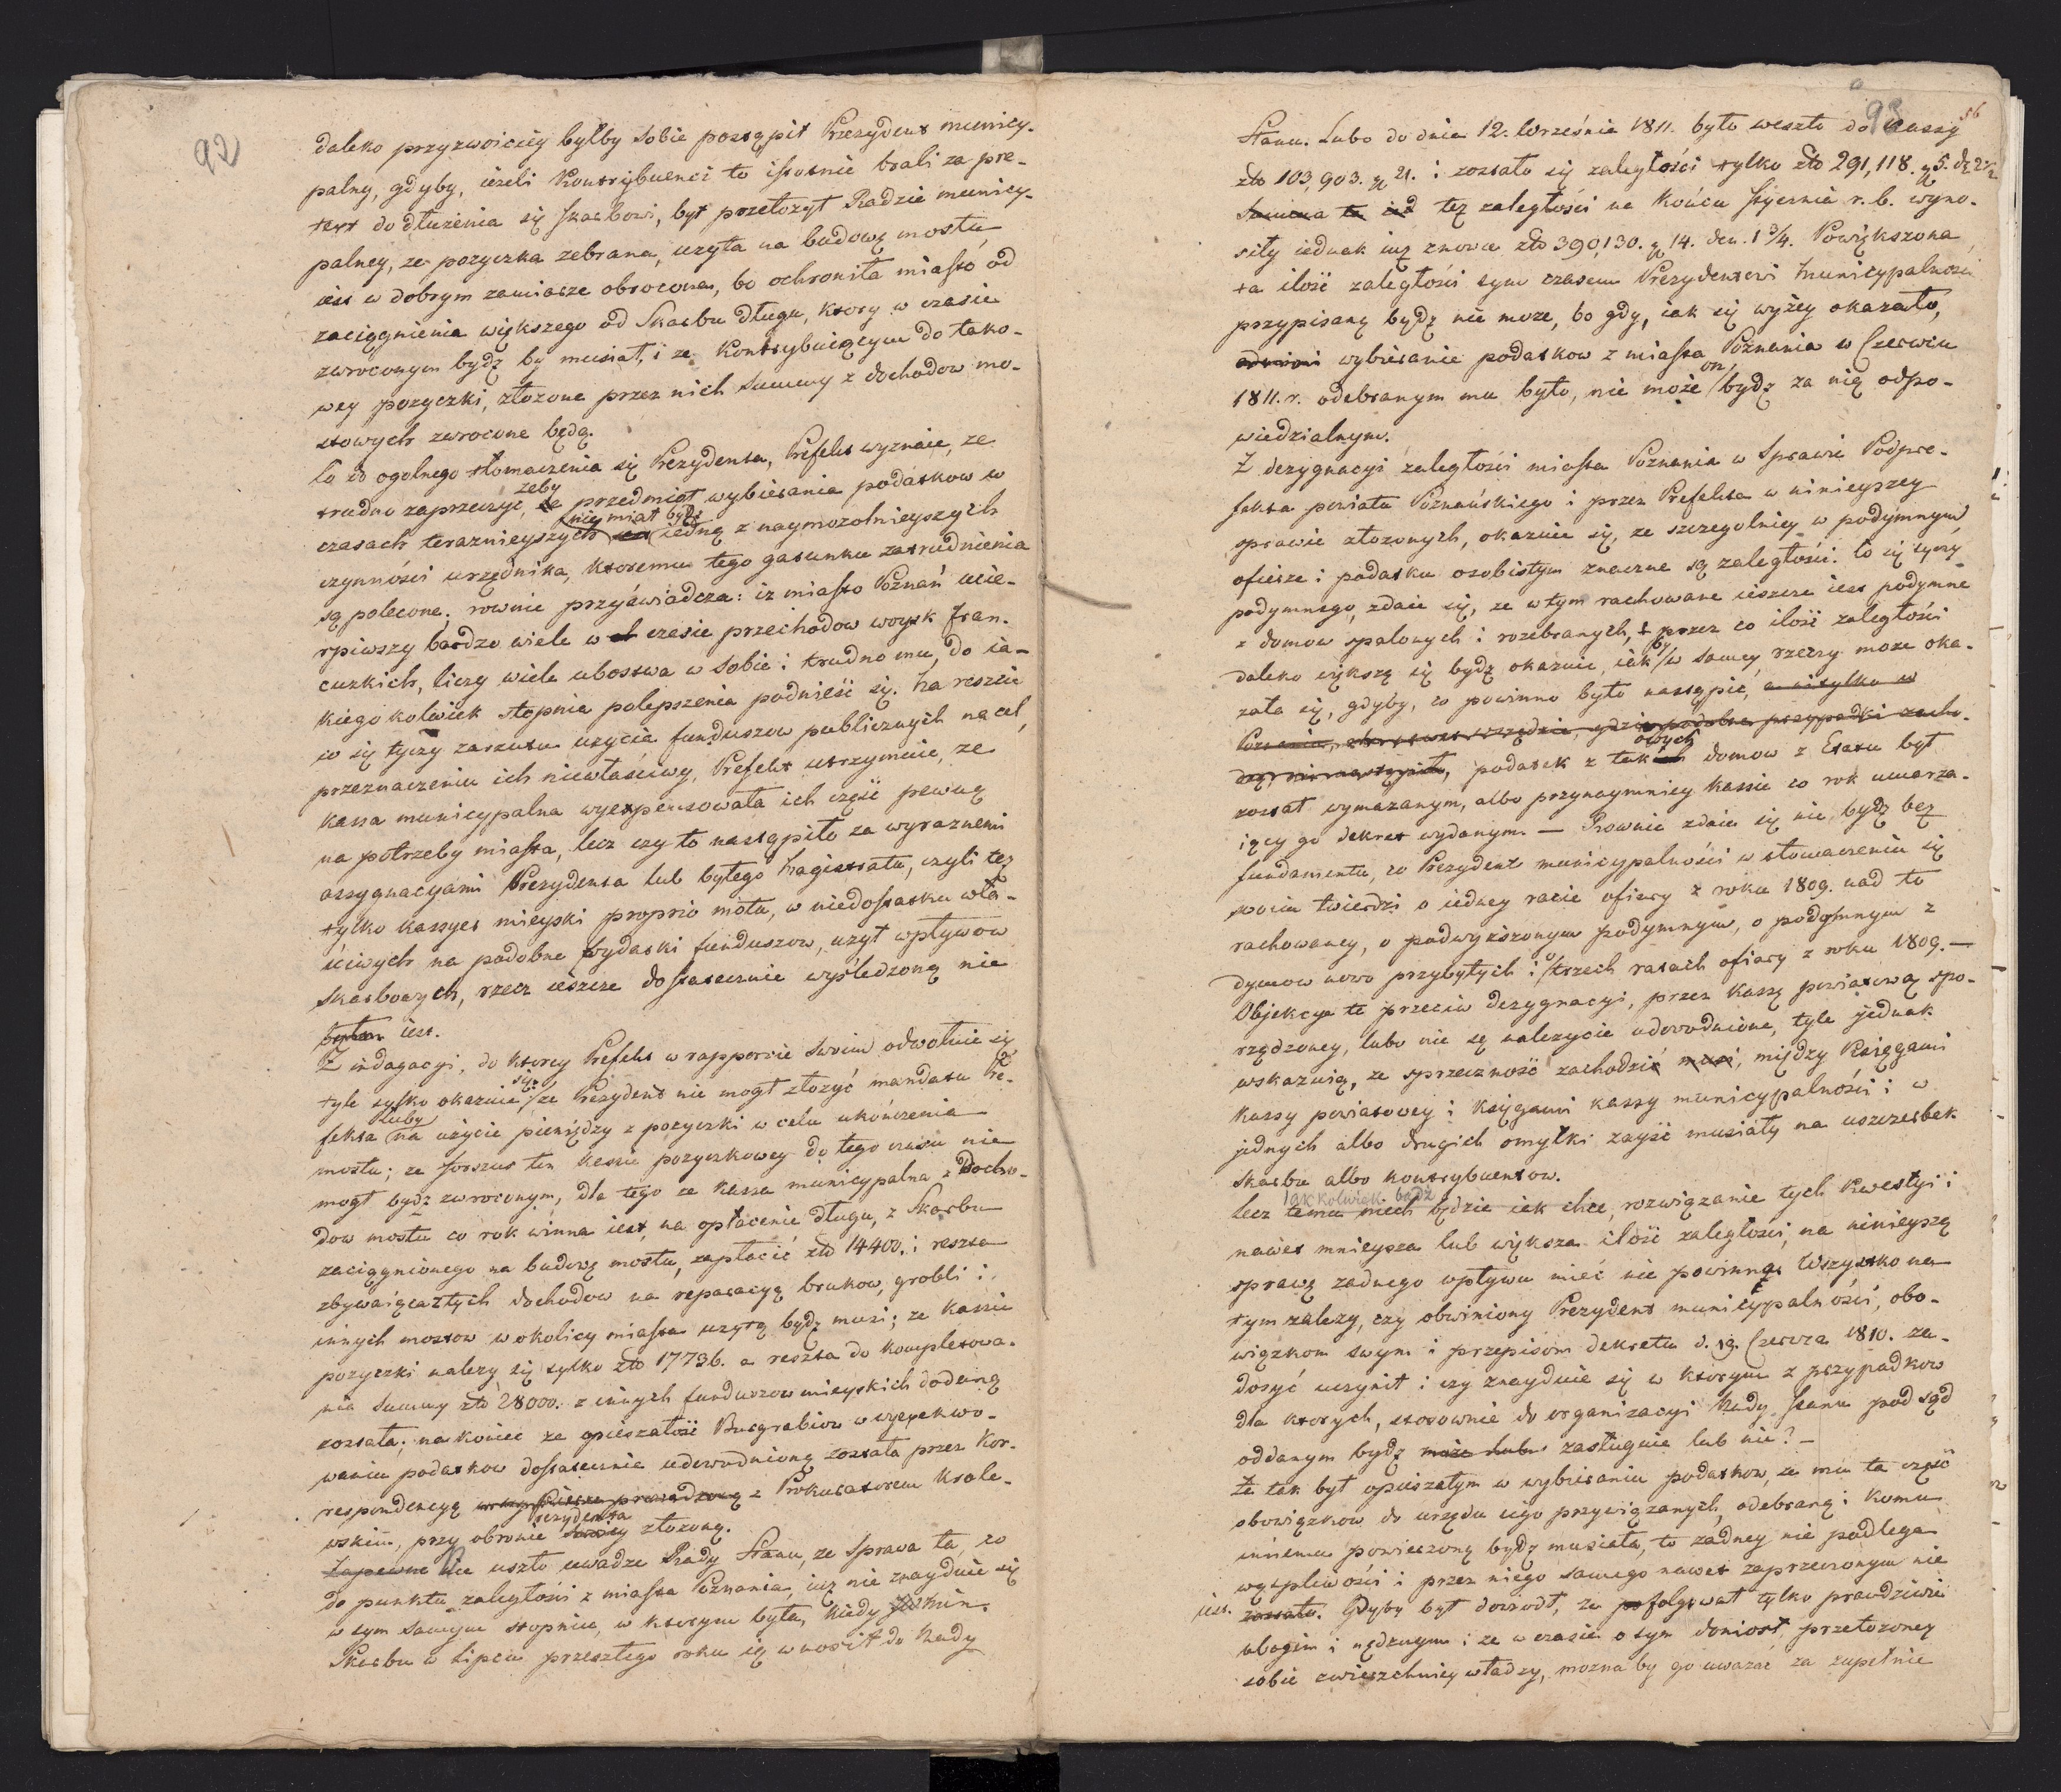 92
daleko przyzwoiciey byłby sobie postąpił Prezydent municy-
palny, gdyby, ieżeli Kontrybuenci to istotnie brali za pre-
text do dłużenia się skarbowi, był przełożył Radzie municy-
palney, ze pożyczka zebrana, użyta na budowę mostu,
iest w dobrym zamiarze obrocona, bo ochroniła miasto od
zaciągnienia większego od Skarbu długu, ktory w czasie
zwroconym bydź by musiał, i ze Kontrybuiącym do tako-
wey pozyczki, złożone przez nich summy z dochodow mo-
stowych zwrocone będą.
Co do ogolnego tłomaczenia się Prezydenta, Prefekt wyznaie, ze
trudno zaprzeczyć, żeby przedmiot wybierania podatkow w
czasach teraznieyszych nie miał bydź iedną z naymozolnieyszych
czynności urzędnika, ktoremu tego gatunku zatrudnienia
są polecone; rownie przyświadcza: iz miasto Poznań ucie-
rpiwszy bardzo wiele w czasie przechodow woysk fran-
cuzkich, liczy wiele ubostwa w sobie i trudno mu, do ia-
kiego kolwiek stopnia polepszenia podnieść się. Na reszcie
co się tyczy zarzutu użycia funduszow publicznych na cel,
przeznaczeniu ich niewłaściwy, Prefekt utrzymuie, ze
kassa municypalna wyexpensowała ich część pewną
na potrzeby miasta, lecz czy to nastąpiło za wyraznemi
assygnacyami Prezydenta lub byłego Magistratu, czyli też
tylko kassyer mieyski proprio motu, w niedostatku wła-
ściwych na podobne wydatki funduszow, użył wpływow
skarbowych, rzecz ieszcze dostatecznie wyśledzoną nie
iest.
Z indagacyi, do ktorey Prefekt w rapporcie swoim odwołuie się
tyle tylko okazuie się, że Prezydent nie mogł złożyć mandatu Pre-
fekta na użycie pieniędzy z pożyczki w celu ukończenia
mostu; ze forszus ten kassie pożyczkowey do tego czasu nie
mogł bydź zwroconym, dla tego ze kassa municypalna z docho-
dow mostu co rok winna iest, na opłacenie długu, z Skarbu
zaciągnionego na budowę mostu, zapłacić złt 14400. i reszta
zbywaiąca z tych dochodow na reparacyą brukow, grobli i
innych mostow w okolicy miasta użytą bydź musi; ze kassie
pożyczki należy się tylko złt 17736. a reszta do kompletowa-
nia summy złt 28000. z innych funduszow mieyskich dodaną
została; na koniec ze opieszałość Burgrabiow w wyexekwo-
waniu podatkow dostatecznie udowodnioną została przez kor-
respondencyą z Prokuratorem Krole-
wskim, przy obronie Prezydenta złożoną.
Nie uszło uwadze Rady Stanu, ze sprawa ta, co
do punktu zaległości z miasta Poznania, iuż nie znayduie się
w tym samym stopniu, w ktorym była, kiedy Minr.
Skarbu w Lipcu przeszłego roku ią wnosił do Rady
93
56
Stanu. Lubo do dnia 12. Września 1811. było weszło do kassy
złt 103,903. gr 21. i zostało się zaległości tylko złt 291,118. gr 5. d. 2½
też zaległości na końcu stycznia r. b. wyno-
siły iednak iuż znowu złt 390,130. gr 14. den. 1¾. Powiększona
ta ilość zaległości tym czasem Prezydentowi Municypalności
przypisaną bydź nie może, bo gdy, iak się wyżey okazało,
wybieranie podatkow z miasta Poznania w Czerwcu
1811. r. odebranym mu było, nie może on bydź za nię odpo-
wiedzialnym.
Z dezygnacyi zaległości miasta Poznania w sprawie Podpre-
fekta powiatu Poznańskiego i przez Prefekta w ninieyszey
sprawie złożonych, okazuie się, ze szczegolniey w podymnym,
ofierze i podatku osobistym znaczne są zaległości. Co się tyczy
podymnego, zdaie się, ze w tym rachowane ieszcze iest podymne
z domow spalonych i rozebranych, przez co ilość zaległości
daleko większą się bydź okazuie, iak by w samey rzeczy może oka-
zała się, gdyby, co powinno było nastąpić,
podatek z takowych domow z Etatu był
został wymazanym, albo przynaymniey kassie co rok umarza-
iący go dekret wydanym. — Rownie zdaie się nie bydź bez
fundamentu, co Prezydent municypalności w tłomaczeniu się
swoim twierdzi o iedney racie ofiary z roku 1809. nad to
rachowaney, o podwyższonym podymnym, o podymnym z
dymow nowo przybyłych i o trzech ratach ofiary z roku 1809. —
Objekcye te przeciw dezygnacyi, przez kassę powiatową spo-
rządzoney, lubo nie są należycie udowodnione, tyle jednak
wskazuią, ze sprzeczność zachodzi, między Księgami
kassy powiatowey i księgami kassy municypalności i w
jednych albo drugich omyłki zayść musiały na uszczerbek
skarbu albo kontrybuentow.
Lecz Iakkolwiek bądź rozwiązanie tych kwestyi i
nawet mnieysza lub większa ilość zaległości, na ninieyszą
sprawę zadnego wpływu mieć nie powinny. Wszystko na
tym zalezy, czy obwiniony Prezydent municypalności, obo-
wiązkom swym i przepisom dekretu d. 19. Czerwca 1810. za-
dosyć uczynił i czy znayduie się w ktorym z przypadkow
dla ktorych, stosownie do organizacyi Rady Stanu pod sąd
oddanym bydź zasługuie lub nie? —
Że tak był opieszałym w wybieraniu podatkow, ze mu ta część
obowiązkow do urzędu iego przywiązanych, odebraną i komu
innemu powierzoną bydź musiała, to zadney nie podlega
wątpliwości i przez niego samego nawet zaprzeczonym nie
iest. Gdyby był dowodł, ze folgował tylko prawdziwie
ubogim i nędznym i ze w czasie o tym doniosł przełożoney
sobie zwierzchniey władzy, można by go uważać za zupełnie